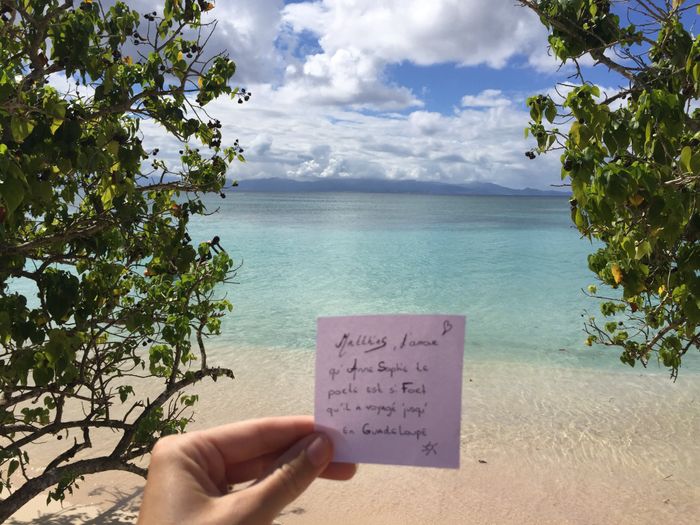 Matthias, l'amour
qu'Anne Sophie te
porte est si Fort
qu'il a voyagé jusqu'
en Guadeloupe